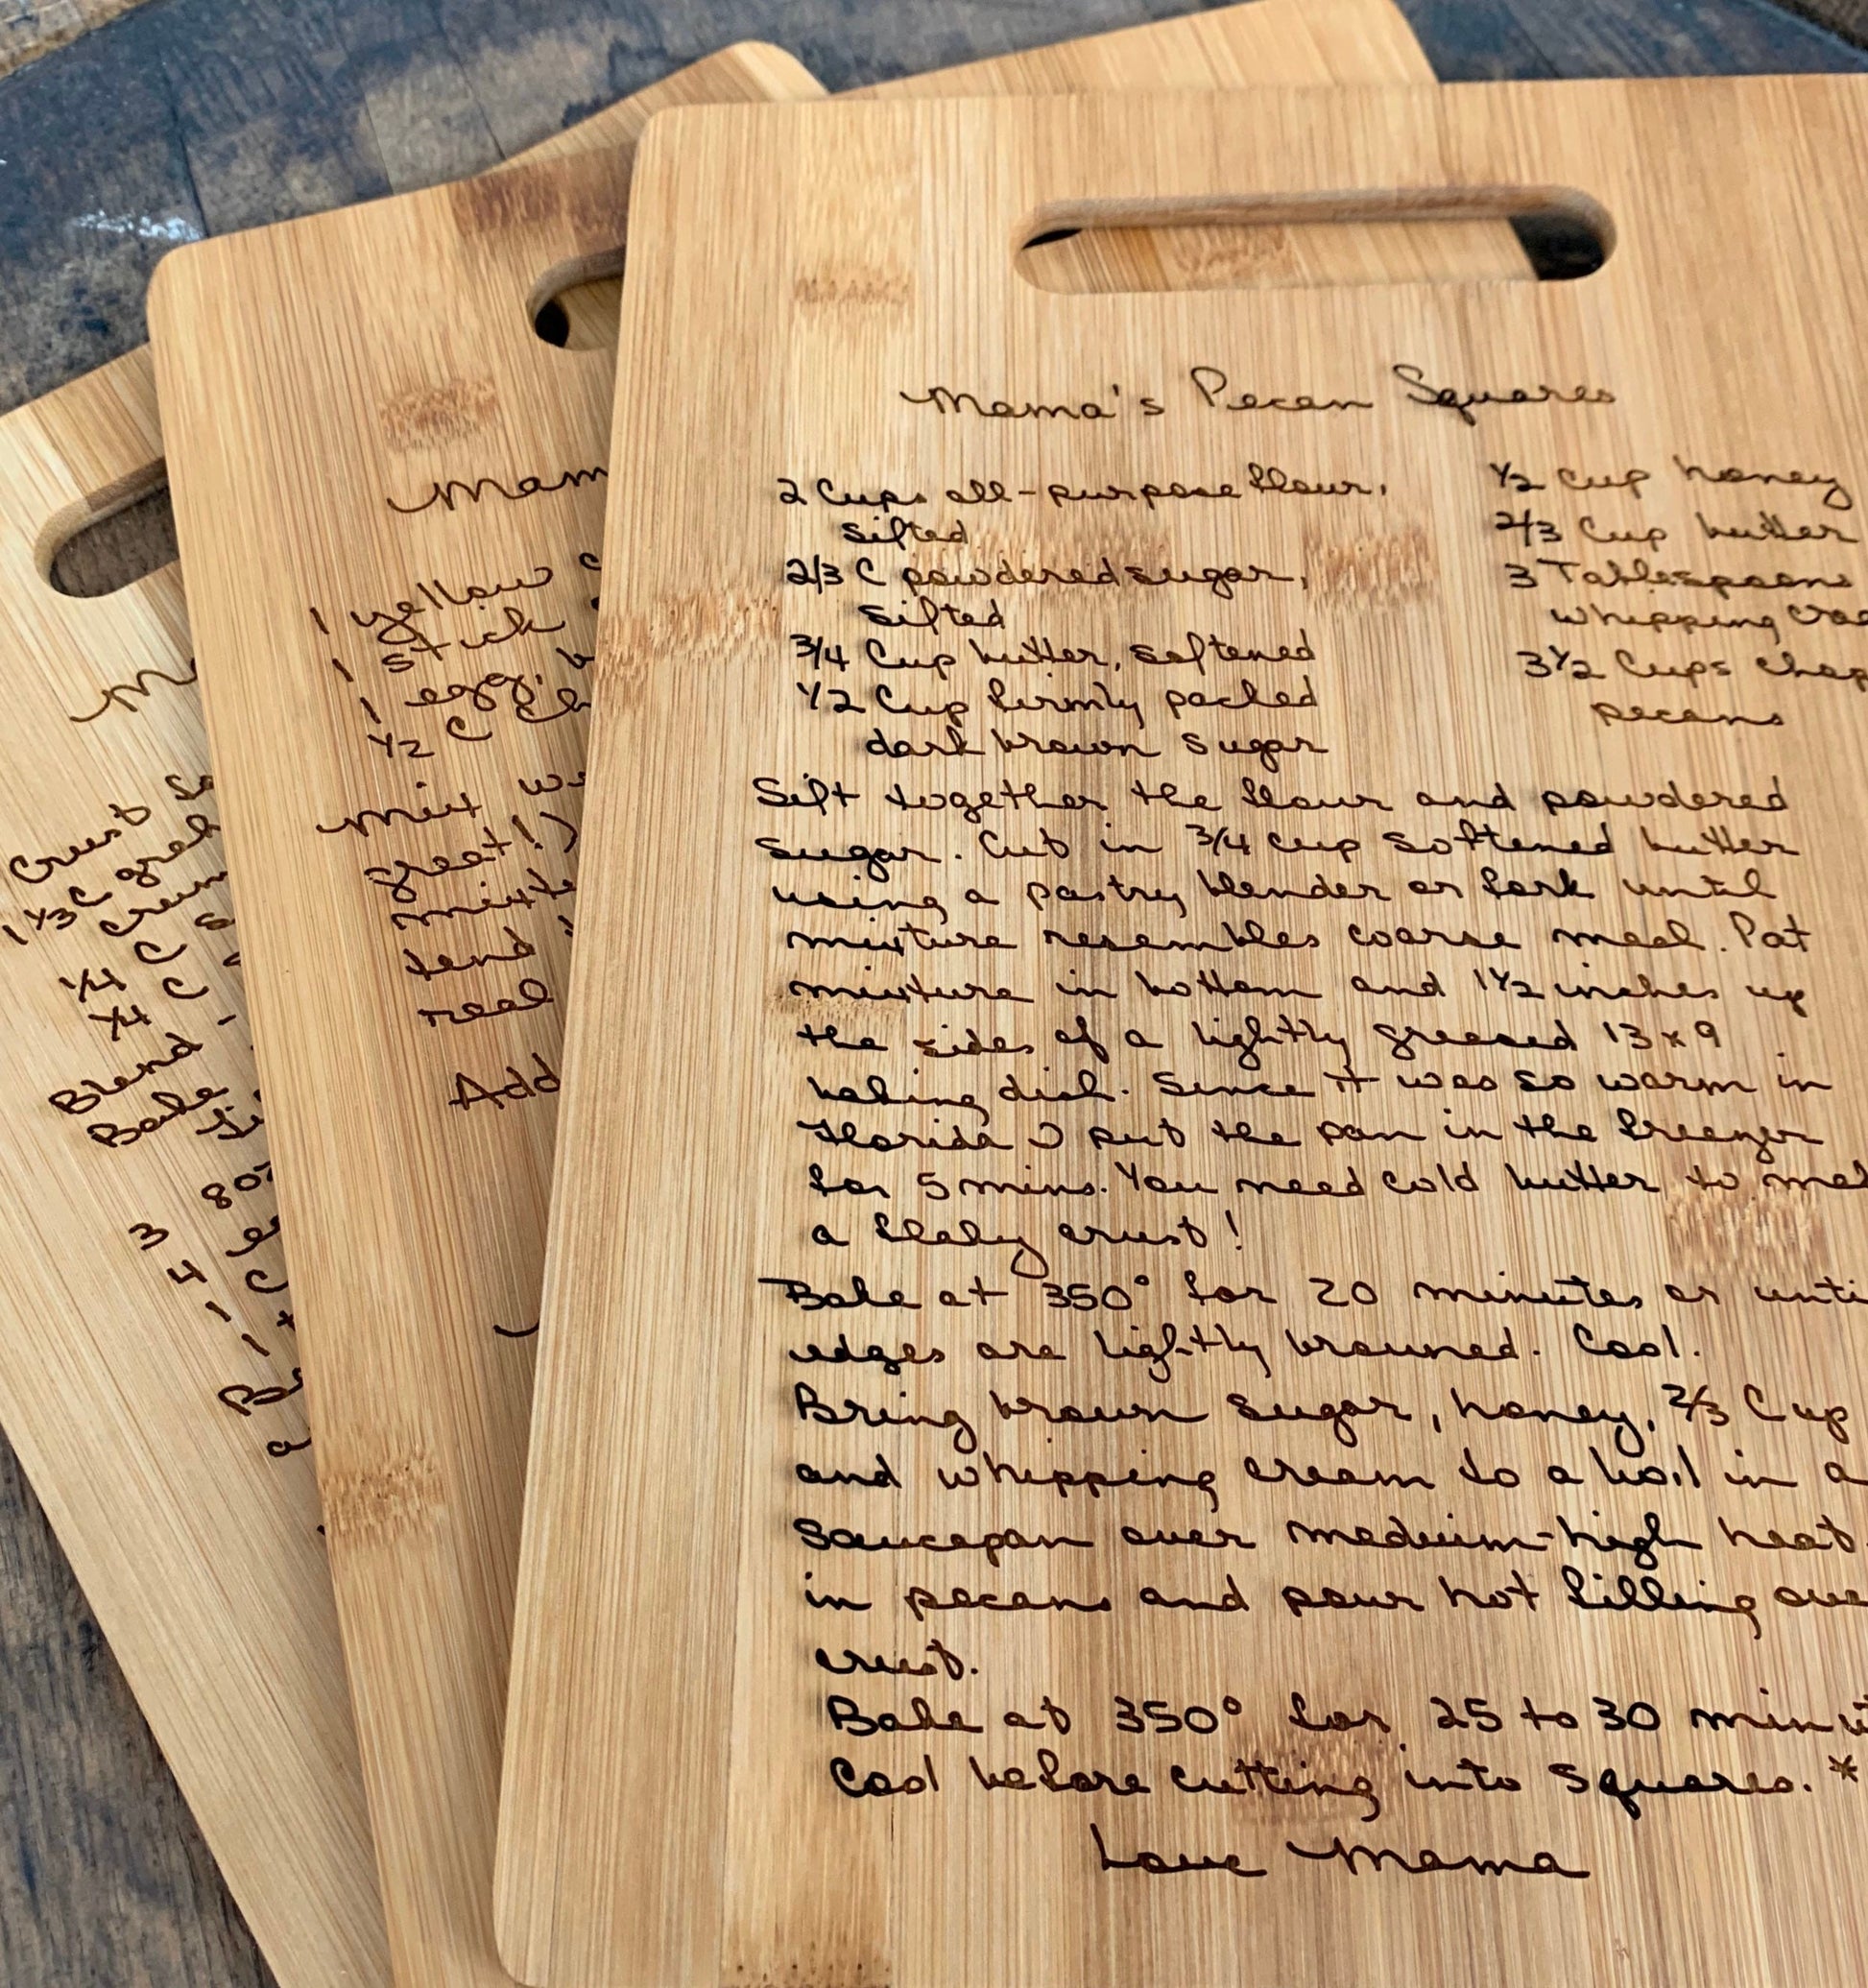 Mama's Pecan Squares
2 Cups all-purpose flour,
sifted
2/3 C powdered sugar,
sifted
3/4 Cup butter, softened
1/2 Cup firmly packed
dark brown sugar
1/2 cup honey
2/3 Cup butter
3 Tablespoons
whipping crea
3 1/2 Cups chop
pecans
Sift together the flour and powdered
sugar. Cut in 3/4 cup softened butter
using a pastry blender or fork until
mixture resembles coarse meal. Pat
mixture in bottom and 1 1/2 inches up
the sides of a lightly greased 13 x 9
baking dish. Since it was so warm in
Florida I put the pan in the freezer
for 5 mins. You need cold butter to mak
a flaky crust!
Bake at 350° for 20 minutes or unti
edges are lightly browned. Cool.
Bring brown sugar, honey, 2/3 Cup
and whipping cream to a boil in a
saucepan over medium-high heat.
in pecans and pour hot filling ove
crust.
Bake at 350° for 25 to 30 minut
Cool before cutting into squares. *
Love Mama
Mam
1 yellow c
1 stick
1 egg, b
1/2 C ch
Mix we
great!)
mixte
tend
real
Add
M
Crust
1 1/3 C grah
crum
1/4 C s
1/4 C
Blend
Bake
Fi
8 oz
3 eg
4 C
1
1 t
Be
a